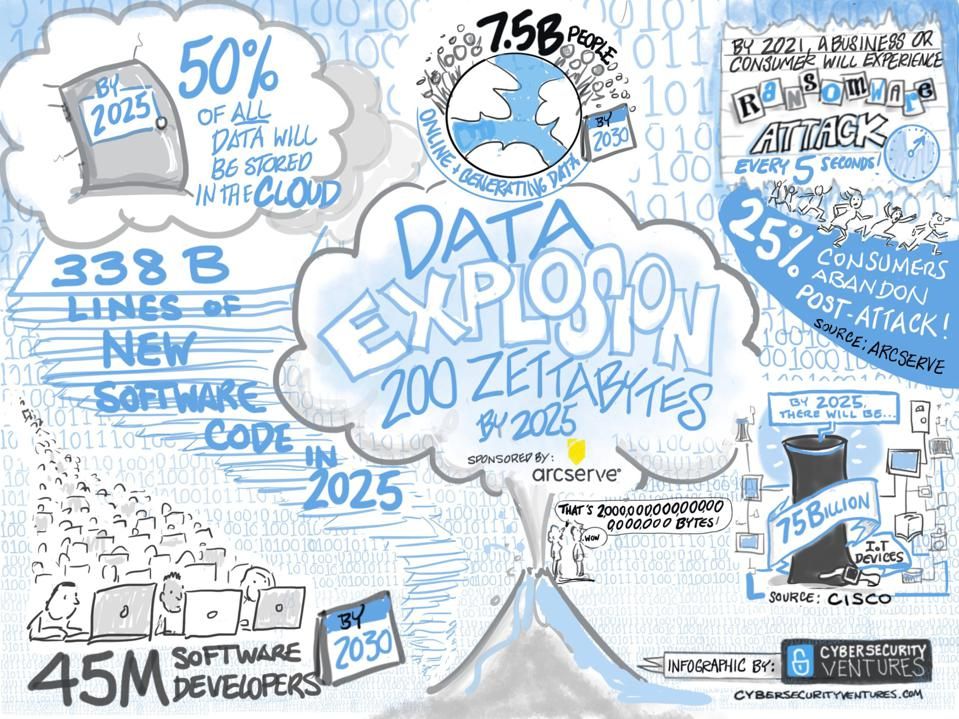 BY
2025
50%
OF ALL
DATA WILL
BE STORED
IN THE CLOUD
7.5B PEOPLE
ONLINE + GENERATING DATA
BY
2030
BY 2021, A BUSINESS OR
CONSUMER WILL EXPERIENCE
RANSOMWARE
ATTACK
EVERY 5 SECONDS!
25%
CONSUMERS
ABANDON
POST-ATTACK!
SOURCE: ARCSERVE
338 B
LINES OF
NEW
SOFTWARE
CODE
IN
2025
DATA
EXPLOSION
200 ZETTABYTES
BY 2025
SPONSORED BY:
arcserve®
THAT'S 2000,000,000000000
0,000,000 BYTES!
WOW
BY 2025,
THERE WILL BE...
75 BILLION
IoT
DEVICES
SOURCE: CISCO
45M SOFTWARE
DEVELOPERS
BY
2030
INFOGRAPHIC BY:
CYBERSECURITY
VENTURES
CYBERSECURITYVENTURES.COM